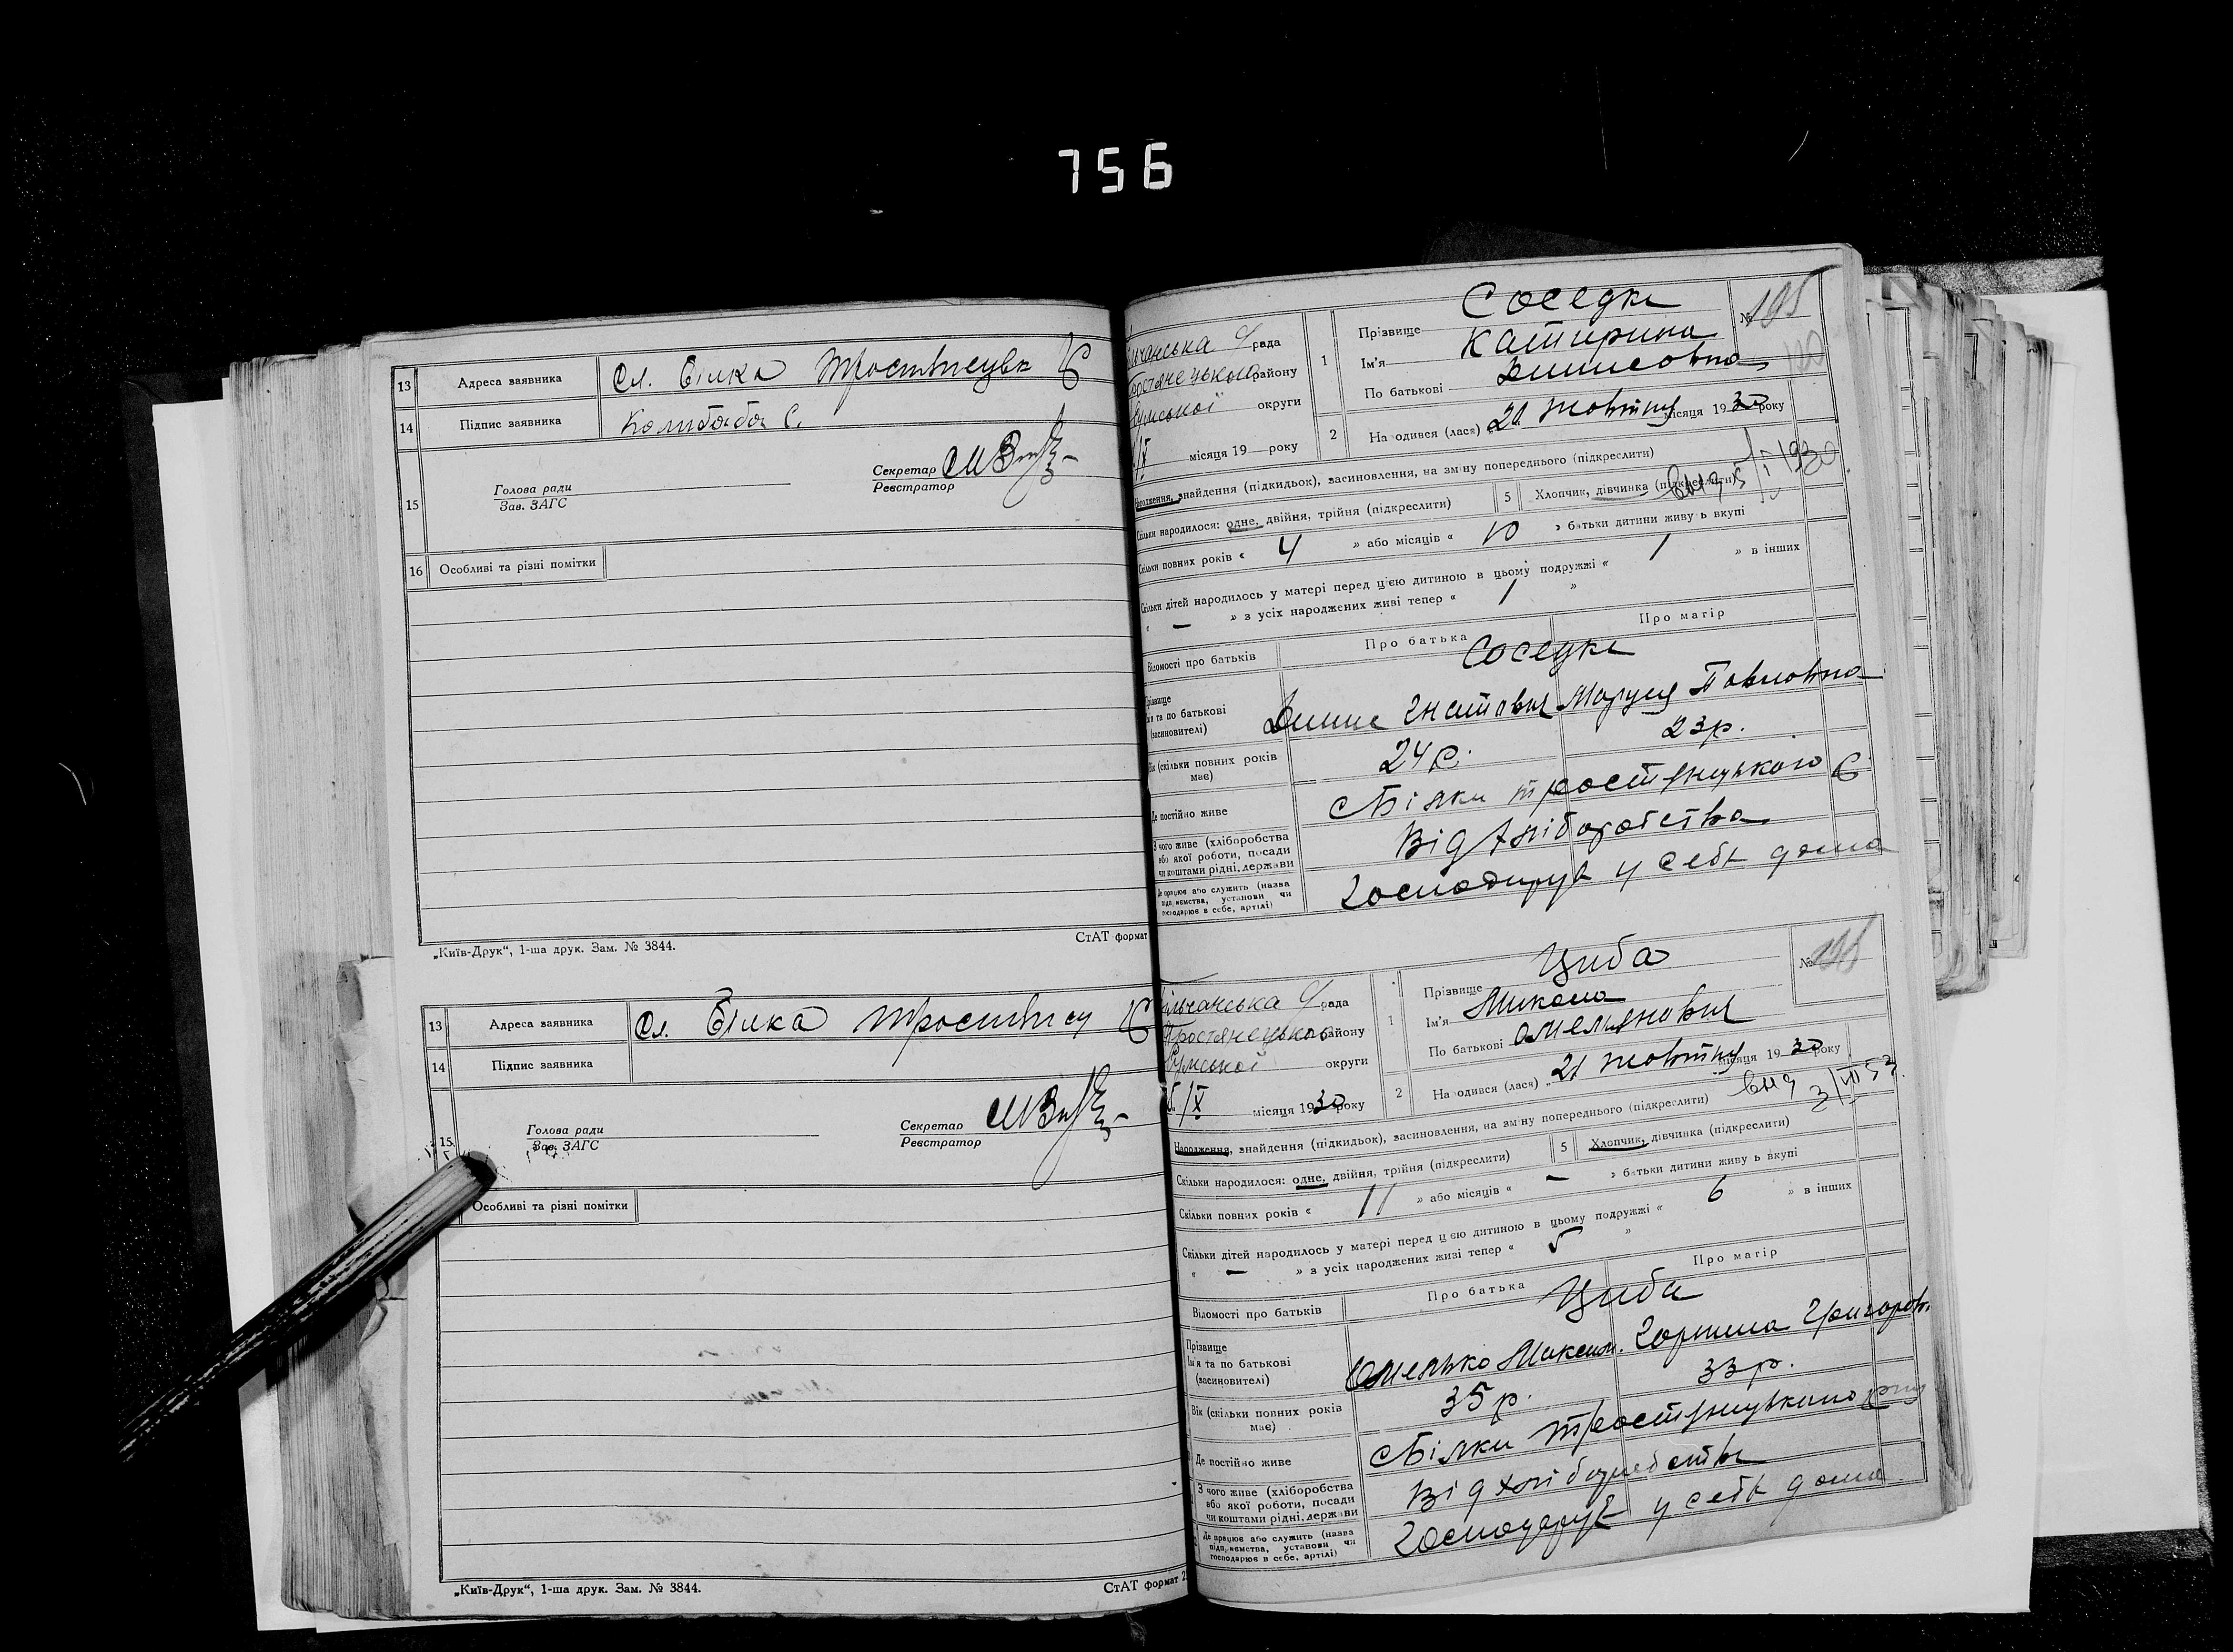 756
13 Адреса заявника Сл. Білка Тростянецьк
14 Підпис заявника Колибаба С.
15 Голова ради
Зав. ЗАГС
Секретар
Реєстратор
16 Особливі та різні помітки
„Київ-Друк“, 1-ша друк. Зам. № 3844.
СтАТ формат
13 Адреса заявника Сл. Білка Тростянец
14 Підпис заявника
15 Голова ради
Зав. ЗАГС
Секретар
Реєстратор
Особливі та різні помітки
„Київ-Друк“, 1-ша друк. Зам. № 3844.
СтАТ формат 2
рада
району
округи
/X місяця 19 року
№ 195
1 Прізвище Соседке
Ім'я Катирина
По батькові Динисовна
2 На одився (лася) „21 жовтня місяця 1930 року
Народження, знайдення (підкидьок), засиновлення, на зміну попереднього (підкреслити)
Скільки народилося: одне, двійня, трійня (підкреслити) 5 Хлопчик, дівчинка (підкреслити)
Скільки повних років « 4 » або місяців « 10 » батьки дитини живу ь вкупі
Скільки дітей народилось у матері перед цією дитиною в цьому подружжі « 1 » в інших
« — » з усіх народжених живі тепер « 1 »
Відомості про батьків Про батька Про матір
Прізвище Соседке
Ім'я та по батькові
(засиновителі) Динис Гнатович Маруся Павловна
Вік (скільки повних років має) 24 р. 23 р.
Де постійно живе с Білки тростянецького
З чого живе (хліборобства
або якої роботи, посади
чи коштами рідні, держави Від хліборобства
Де працює або служить (назва
підприємства, установи чи
господарює в себе, артілі) Господирує у себе дома
рада
району
округи
/X місяця 1930 року
№
1 Прізвище Циба
Ім'я Микола
По батькові Омелянович
2 На одився (лася) „21 жовтня місяця 1930 року
Народження, знайдення (підкидьок), засиновлення, на зміну попереднього (підкреслити)
Скільки народилося: одне, двійня, трійня (підкреслити) 5 Хлопчик, дівчинка (підкреслити)
Скільки повних років « 11 » або місяців « — » батьки дитини живу ь вкупі
Скільки дітей народилось у матері перед цією дитиною в цьому подружжі « 6 » в інших
« — » з усіх народжених живі тепер « 5 »
Відомості про батьків Про батька Про матір
Прізвище Циба
Ім'я та по батькові
(засиновителі) Омелько Максим. Горпина Григоров.
Вік (скільки повних років має) 35 р. 33 р.
Де постійно живе с Білки тростянецького
З чого живе (хліборобства
або якої роботи, посади
чи коштами рідні, держави Від хліборобства
Де працює або служить (назва
підприємства, установи чи
господарює в себе, артілі) Господарує у себе дома